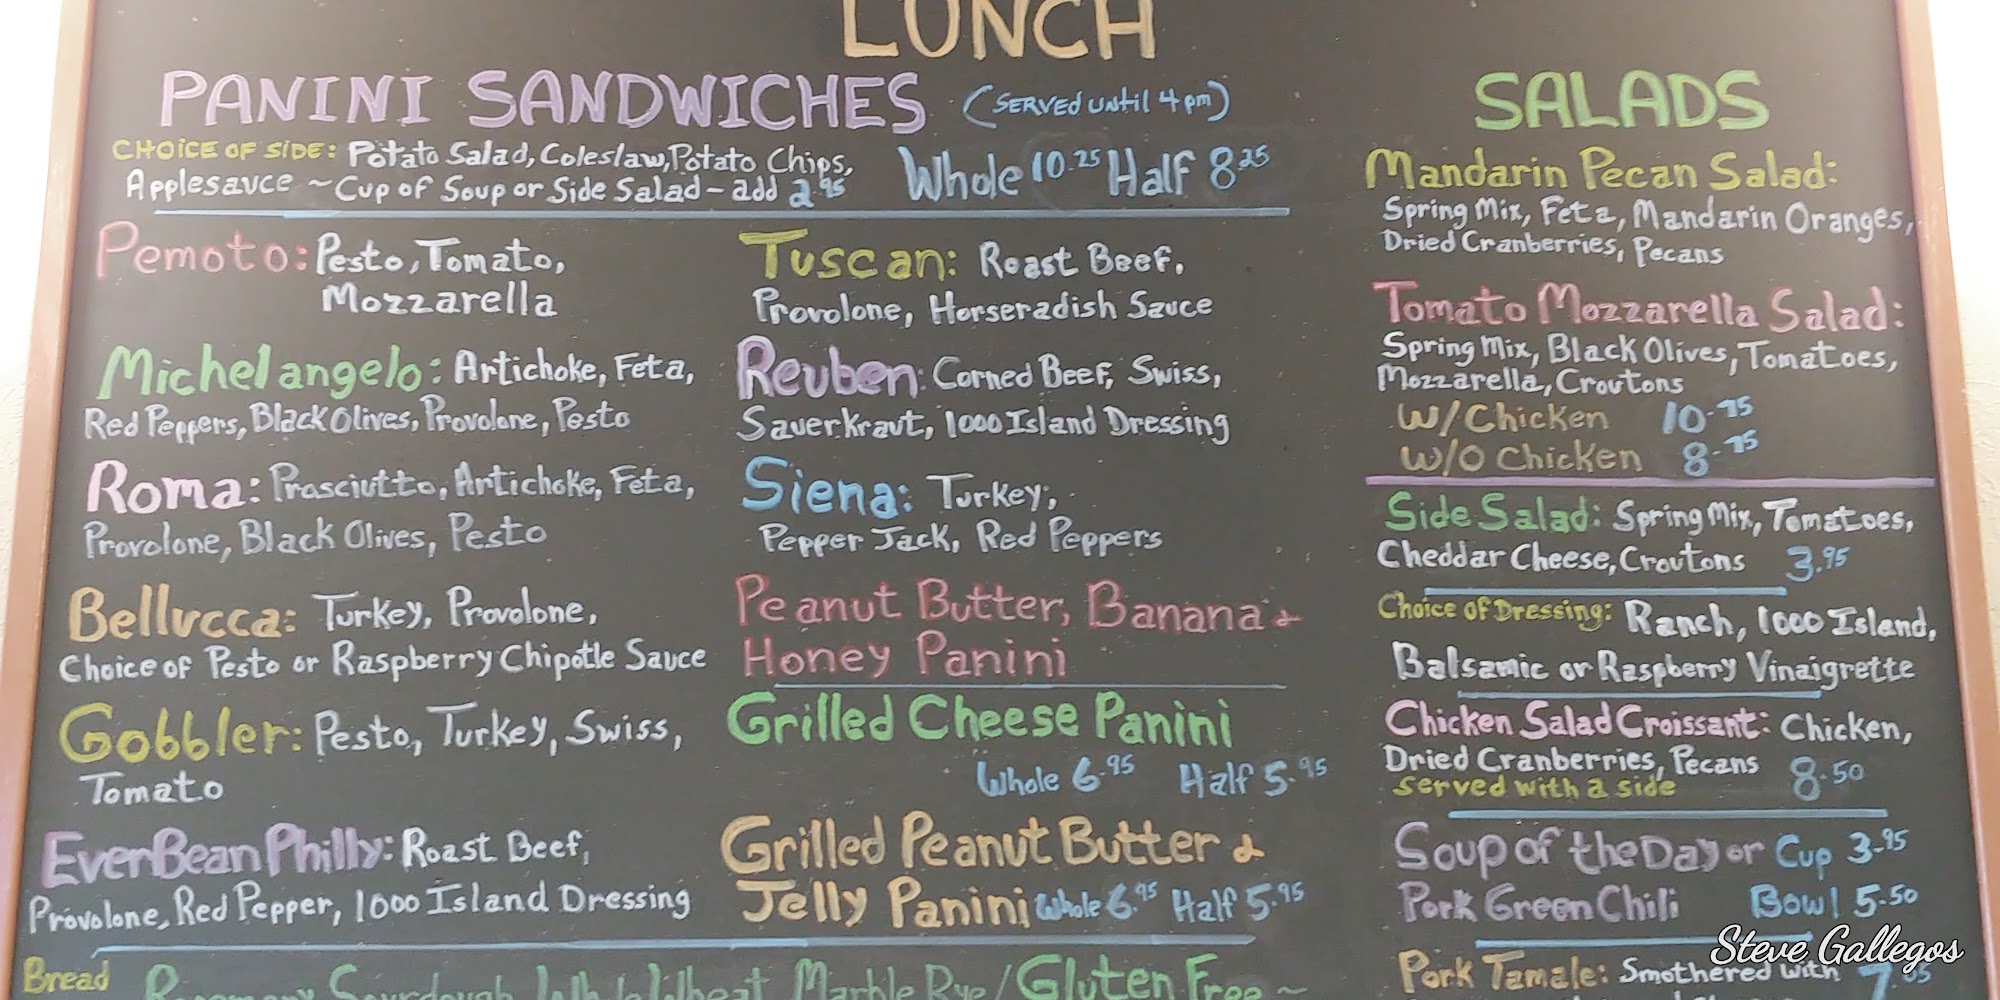 LUNCH
PANINI SANDWICHES (SERVED UNTIL 4pm)
CHOICE OF SIDE: Potato Salad, Coleslaw, Potato Chips,
Applesauce ~ Cup of Soup or Side Salad - add 2.95
Whole 10.25 Half 8.25
Pemoto: Pesto, Tomato,
Mozzarella
Michelangelo: Artichoke, Feta,
Red Peppers, Black Olives, Provolone, Pesto
Roma: Prosciutto, Artichoke, Feta,
Provolone, Black Olives, Pesto
Bellucca: Turkey, Provolone,
Choice of Pesto or Raspberry Chipotle Sauce
Gobbler: Pesto, Turkey, Swiss,
Tomato
EverBean Philly: Roast Beef,
Provolone, Red Pepper, 1000 Island Dressing
Tuscan: Roast Beef,
Provolone, Horseradish Sauce
Reuben: Corned Beef, Swiss,
Sauerkraut, 1000 Island Dressing
Siena: Turkey,
Pepper Jack, Red Peppers
Peanut Butter, Banana &
Honey Panini
Grilled Cheese Panini
Whole 6.95 Half 5.95
Grilled Peanut Butter &
Jelly Panini Whole 6.95 Half 5.95
Bread Rosemary Sourdough Whole Wheat Marble Rye / Gluten Free ~
SALADS
Mandarin Pecan Salad:
Spring Mix, Feta, Mandarin Oranges,
Dried Cranberries, Pecans
Tomato Mozzarella Salad:
Spring Mix, Black Olives, Tomatoes,
Mozzarella, Croutons
W/Chicken 10.75
W/O Chicken 8.75
Side Salad: Spring Mix, Tomatoes,
Cheddar Cheese, Croutons 3.95
Choice of Dressing: Ranch, 1000 Island,
Balsamic or Raspberry Vinaigrette
Chicken Salad Croissant: Chicken,
Dried Cranberries, Pecans
served with a side 8.50
Soup of the Day or Cup 3.95
Pork Green Chili Bowl 5.50
Pork Tamale: Smothered with
Steve Gallegos